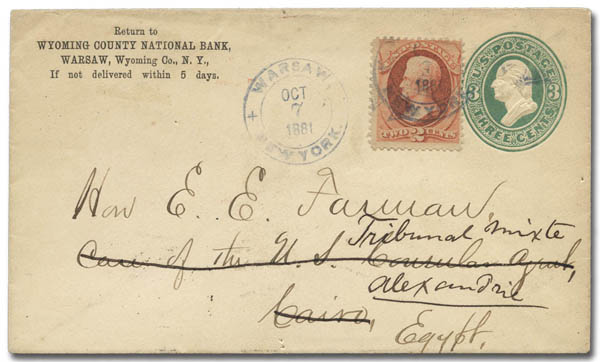 Return to
WYOMING COUNTY NATIONAL BANK,
WARSAW, Wyoming Co., N. Y.,
If not delivered within 5 days.
WARSAW
OCT
7
1881
NEW YORK.
TWO 2 CENTS
U.S. POSTAGE
3 3
THREE CENTS
Hon E. E. Farman,
Tribunal mixte
Care of the U. S. Consular Agent,
Alexandrie
Cairo,
Egypt.